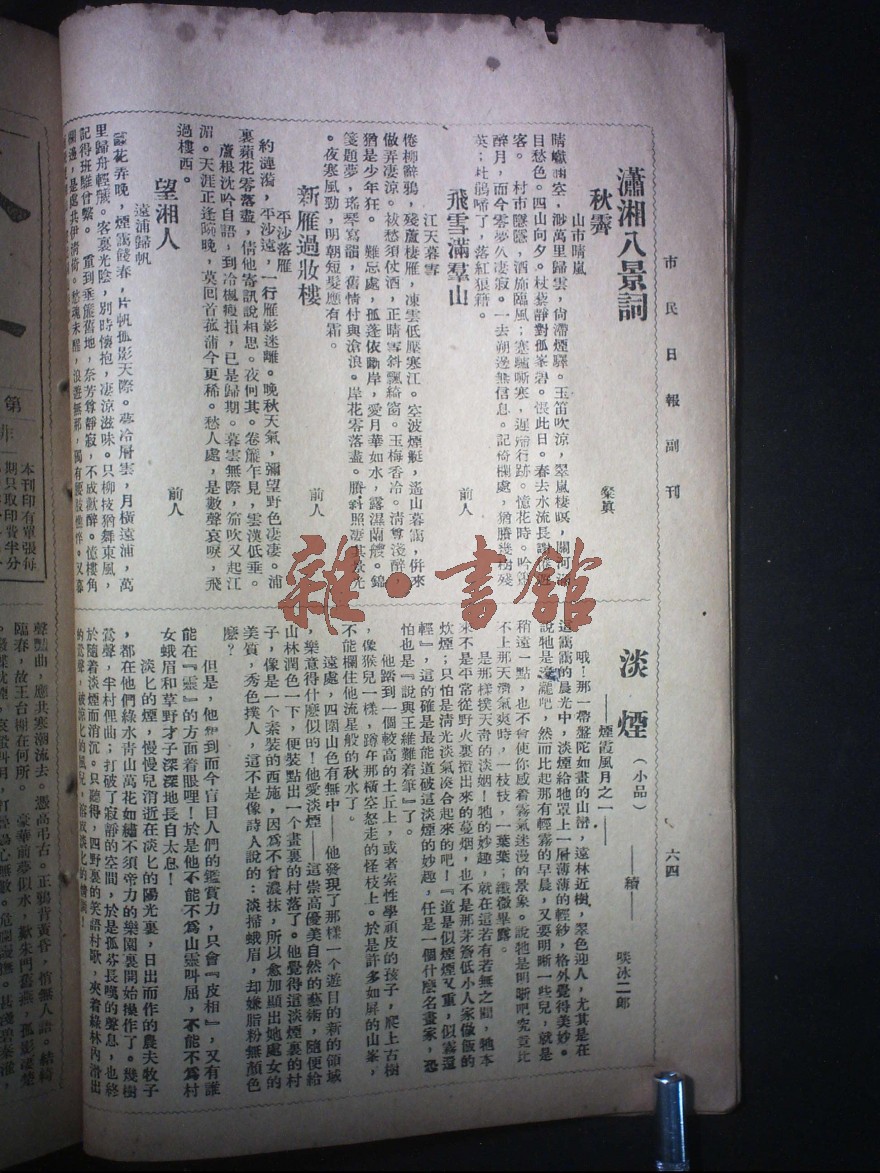 市民日報副刊
六四
瀟湘八景詞
秋霽
山市晴嵐
粲真
晴巘西空，渺萬里歸雲，尚滯煙驛。玉笛吹涼，翠嵐棲暝，關河滿
目愁色。四山向夕。杖藜靜對孤峯碧。悵此日。春去水流長
客。　村市隱隱，酒旆臨風；寒驢嘶寒，遲
行跡。憶花時。吟
醉月，而今零夢久凄寂。一去朔邊無信息。記倚欄處，猶賸幾樹殘
英；杜鵑啼了，落紅狼籍。
飛雪滿羣山
江天暮雪
前人
倦柳辭鴉，殘蘆棲雁，凍雲低壓寒江。空波煙艇，遙山暮靄，併來
做弄凄涼。祓愁須仗酒，正晴雪斜飄綺窗。玉梅香冷。清尊淺醉，
猶是少年狂。　難忘處，孤蓬依斷岸，愛月華如水，露濕蘭艭。錦
箋題夢，瑤琴寫韻，舊情付與滄浪。岸花零落盡。賸斜照
光
。夜寒風勁，明朝短髮應有霜。
新雁過妝樓
平沙落雁
前人
約漣漪，平沙遠，一行雁影迷離。晚秋天氣，彌望野色凄凄。浦
裏蘋花零落盡，倩他寄訊說相思。夜何其。卷簾乍見，雲漢低垂。
蘆根沈吟自語，到冷楓瘦損，已是歸期。暮雲無際，笳吹又起江
湄。天涯正逢晼晚，莫回首菰蒲今更稀。愁人處，是數聲哀唳，飛
過樓西。
望湘人
遠浦歸帆
前人
花弄晚，煙靄餞春，片帆孤影天際。夢冷層雲，月橫遠浦，萬
里歸舟輕颺。客裏光陰，別時懷抱，凄涼滋味。只柳枝猶舞東風，
記得班騅曾繫。　重到垂簾舊地，奈芳尊靜寂，不成歡醉。憶樓角
邊，是處共伊清倚。愁魂未醒，浪遊無那，獨有腰肢憔悴。又暮
淡煙
（小品）
——煙霞風月之一——
——續——
啖冰二郎
哦！那一帶盤陀如畫的山巒，遠林近樹，翠色迎人，尤其是在
這靄靄的晨光中，淡煙給牠罩上一層薄薄的輕紗，格外覺得美妙。
說牠是
罷吧，然而比起那有輕霧的早晨，又要明晰一些兒，就是
稍遠一點，也不會使你感着霧氣迷漫的景象。說牠是明晰吧究竟比
不上那天清氣爽時，一枝枝，一葉葉，纖微畢露。
是那樣撲天青的淡姻！牠的妙趣，就在這若有若無之間，牠本
來不是平常從野火裏攢出來的蔓烟，也不是那茅簷低小人家做飯的
炊煙；只怕是清光淡氣湊合起來的吧！『道是似煙煙又重，似霧還
輕』，這的確是最能道破這淡煙的妙趣，任是一個什麼名畫家，恐
怕也是『說與王維難着筆』了。
他踏到一個較高的土丘上，或者索性學頑皮的孩子，爬上古樹
，像猴兒一樣，蹲在那橫空怒走的怪枝上。於是許多如屏的山峯，
不能欄住他流星般的秋水了。
遠處，四圍山色有無中——他發現了那樣一個遊目的新的領域
，樂意得什麼似的！他愛淡煙——這崇高優美自然的藝術，隨便給
山林潤色一下，便裝點出一個畫裏的村落了。他覺得這淡煙裏的村
子，像是一个素裝的西施，因爲不曾濃抹，所以愈加顯出她處女的
美質，秀色撲人，這不是像詩人說的：淡掃蛾眉，却嫌脂粉無顏色
麼？
但是，他想到而今盲目人們的鑑賞力，只會『皮相』，又有誰
能在『靈』的方面着眼哩！於是他不能不爲山靈叫屈，不能不爲村
女蛾眉和草野才子深深地長自太息！
淡匕的煙，慢慢兒消近在淡匕的陽光裏，日出而作的農夫牧子
，都在他們綠水青山萬花如繡不須帝力的樂園裏開始操作了。幾樹
鶯聲，半村俚曲；打破了寂靜的空間，於是孤芬長嘆的聲息，也終
於隨着淡煙而消沉。只聽得，四野裏的笑語村歌，夾着綠林內滑出
雜·書館
第
本刊印有單張每
期只取印費半分
聲豔曲，廳共寒潮流去。憑高弔古。正鴉背黃昏，悄無人語。結綺
臨春，故王台榭在何所。　豪華前夢似水，歎朱門舊燕，孤影凄楚